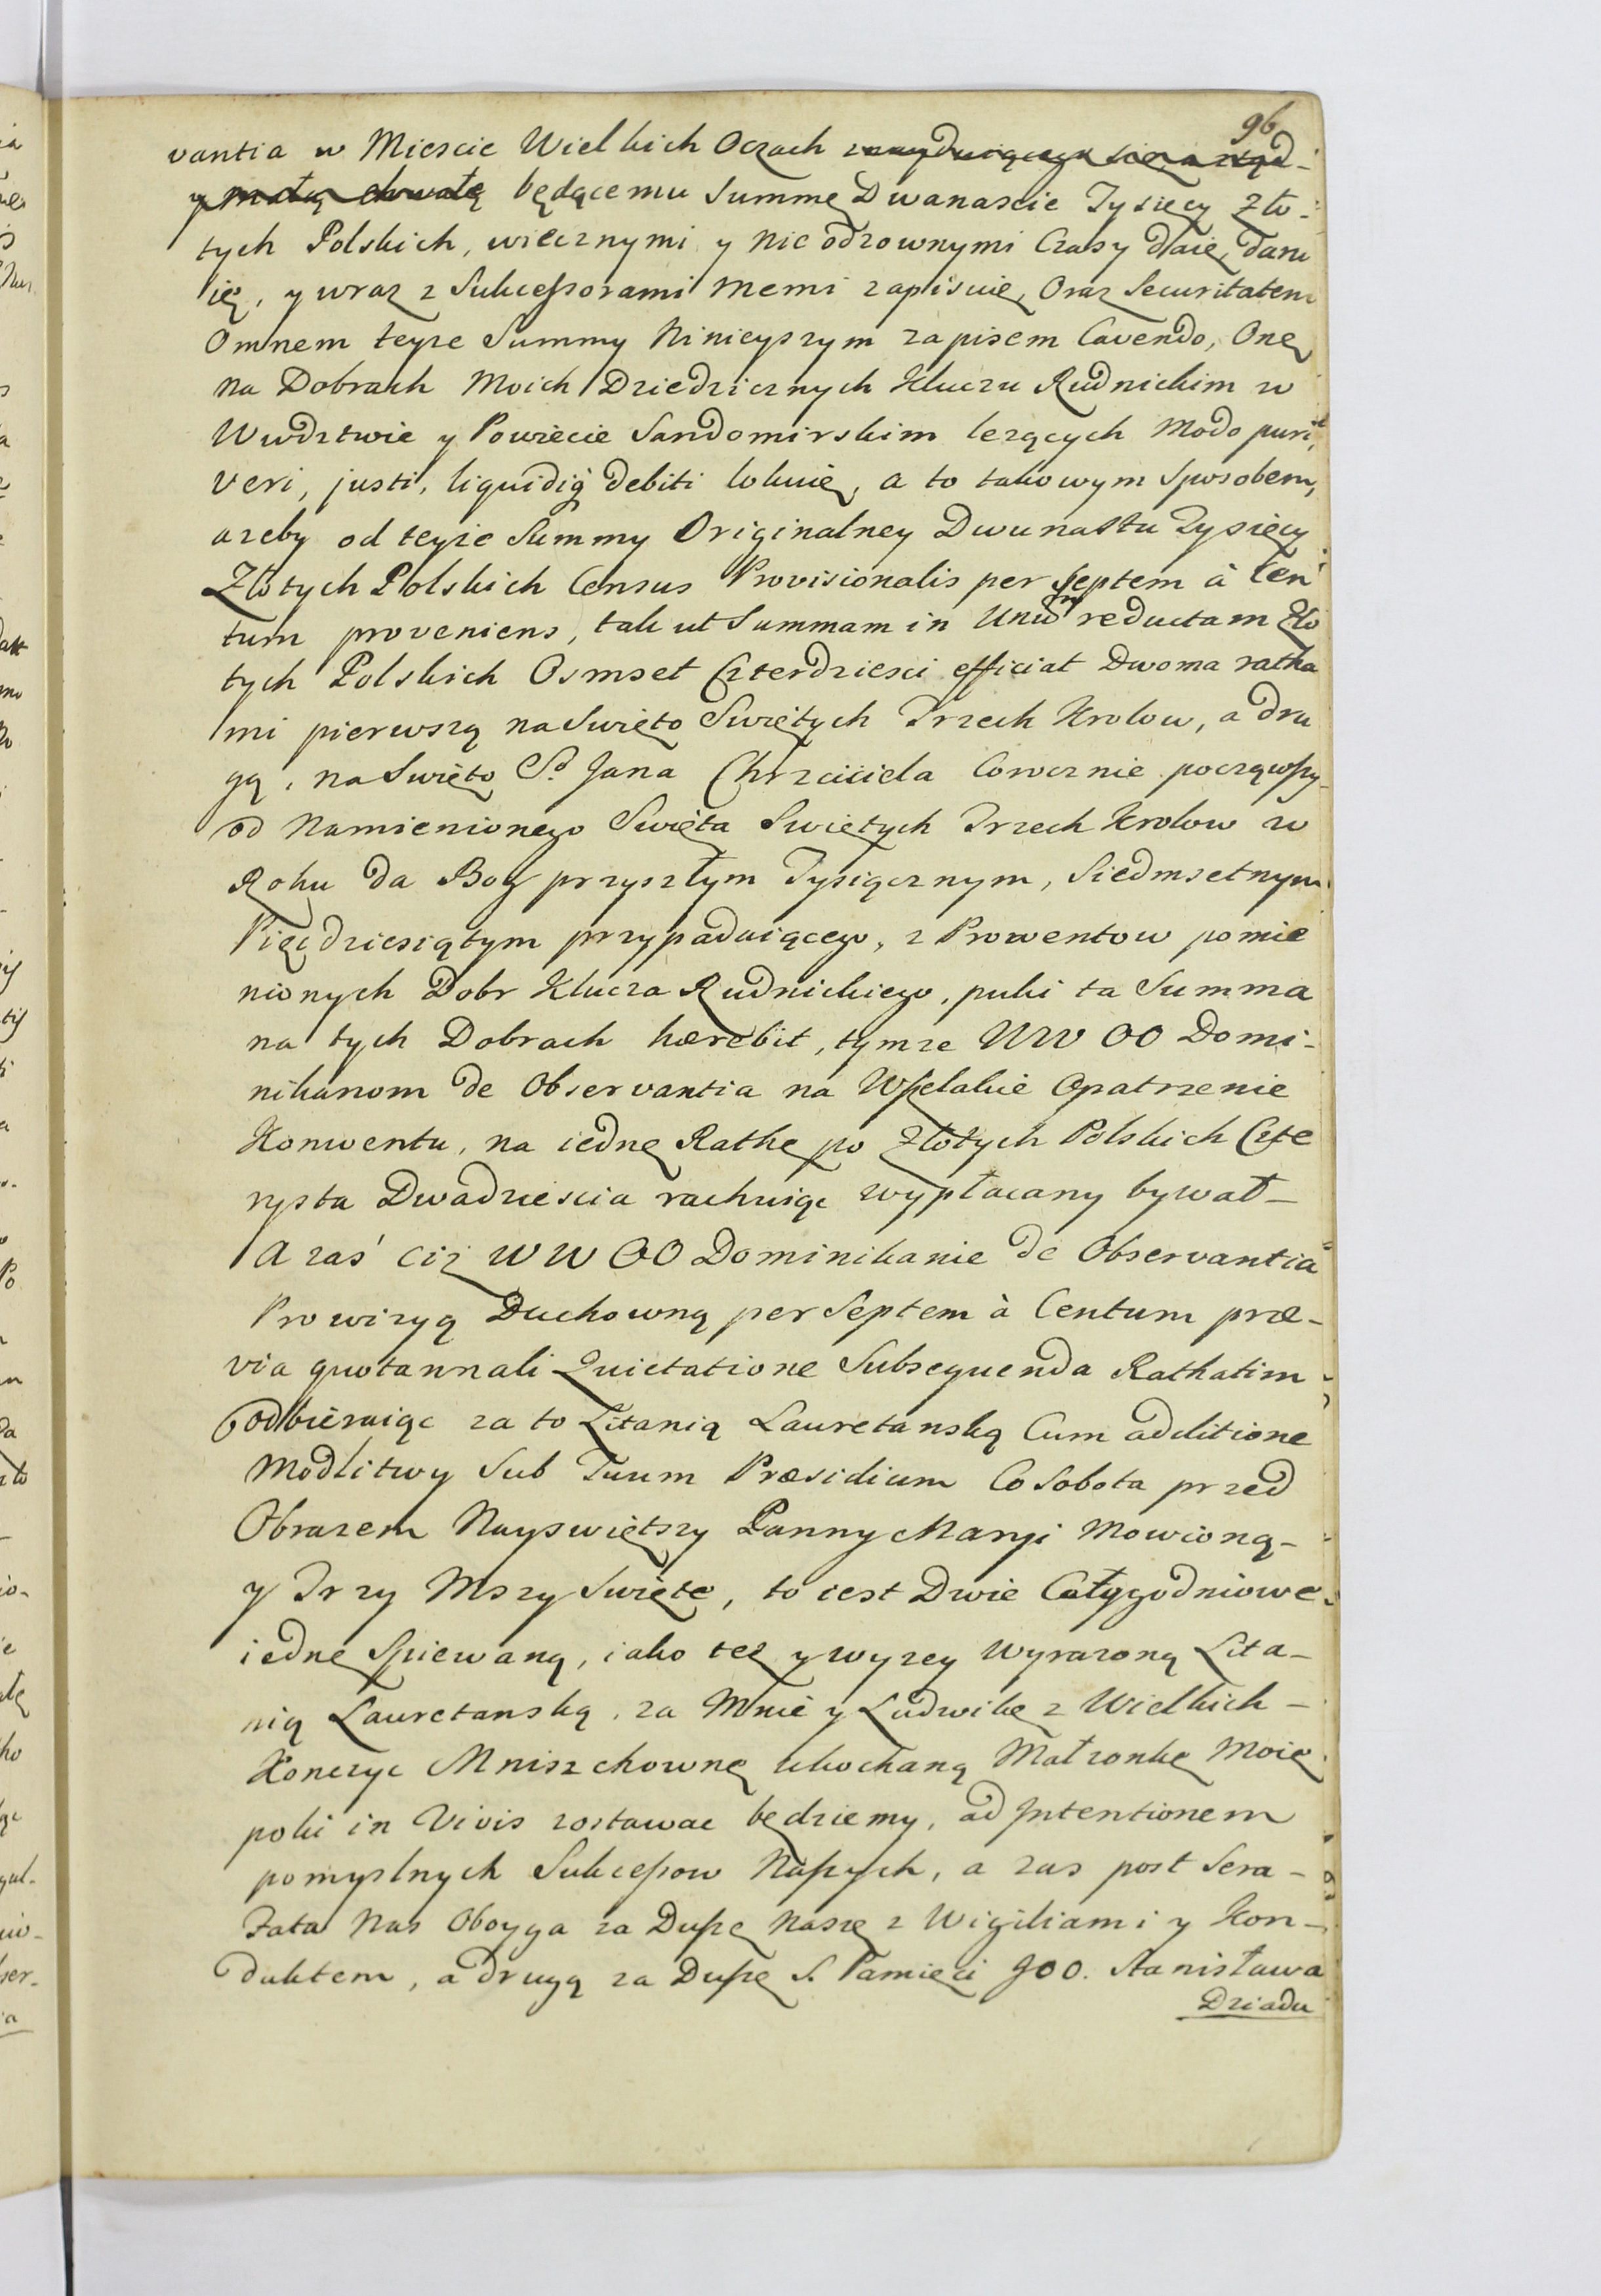 96
vantia w Miescie Wielkich Oczach
będącemu Summę Dwanascie Tysięcy Zło-
tych Polskich, wiecznymi y nie odzownymi Czasy daię, daru
ię, y wraz z Sukceſsorami memi zapisuię, Oraz Securitatem
Omnem teyze Summy Ninieyszym zapisem Cavendo, Onę
na Dobrach Moich Dziedzicznych Kluczu Rudnickim w
Wwdztwie y Powiecie Sandomirskim lezących Modo puri,
veri, justi, liquidiq̀ debiti lokuię, a to takowym sposobem,
azeby od teyze Summy Originalney Dwunastu Tysięcy
Złotych Polskich Census Provisionalis per Septem à Cen
tum proveniens, tak ut Summam in Unũ reductam Zło
tych Polskich Osmset Czterdziesci efficiat Dwoma ratha
mi pierwszą na Swięto Swiętych Trzech Krolow, a dru
gą, na Swięto S.º Jana Chrzciciela Corocznie począwſzy
od Namienionego Swięta Swiętych Trzech Krolow w
Roku da Bog przyszłym Tysiącznym, Siedmsetnym
Pięcdziesiątym przypaduiącego, z Prowentow pomie
nionych Dobr Klucza Rudnickiego, puki ta Summa
na tych Dobrach hærebit, tymze WW OO Domi-
nikanom de Observantia na Wſzelakie Opatrzenie
Konwentu, na iednę Rathę po Złotych Polskich Czte
rysta Dwadziescia rachuiąc wypłacany bywał-
A zaś Ciz WW OO Dominikanie de Observantia
Prowizyą Duchowną per Septem à Centum præ-
via quotannali Quietatione Subsequenda Rathatim
odbieraiąc za to Litanią Lauretanską Cum additione
Modlitwy Sub Tuum Præsidium Co Sobota przed
Obrazem Nayswiętszy Panny Maryi Mowioną-
y Trzy Mszy Swięte, to iest Dwie Całygodniowe-
iednę Spiewaną, iako tez y wyzey Wyrazoną Lita-
nią Lauretanską, za Mnie y Ludwikę z Wielkich-
Konczyc Mniszchownę Ukochaną Małzonkę Moię
poki in Vivis zostawac będziemy, ad Intentionem
pomyslnych Sukceſsow Naſzych, a zas post Sera-
Fata Nas Oboyga za Duſzę Naszę z Wigiliami y Kon-
duktem, a drugą za Duſzę S. Pamięci JOO. Stanisława
Dziadu